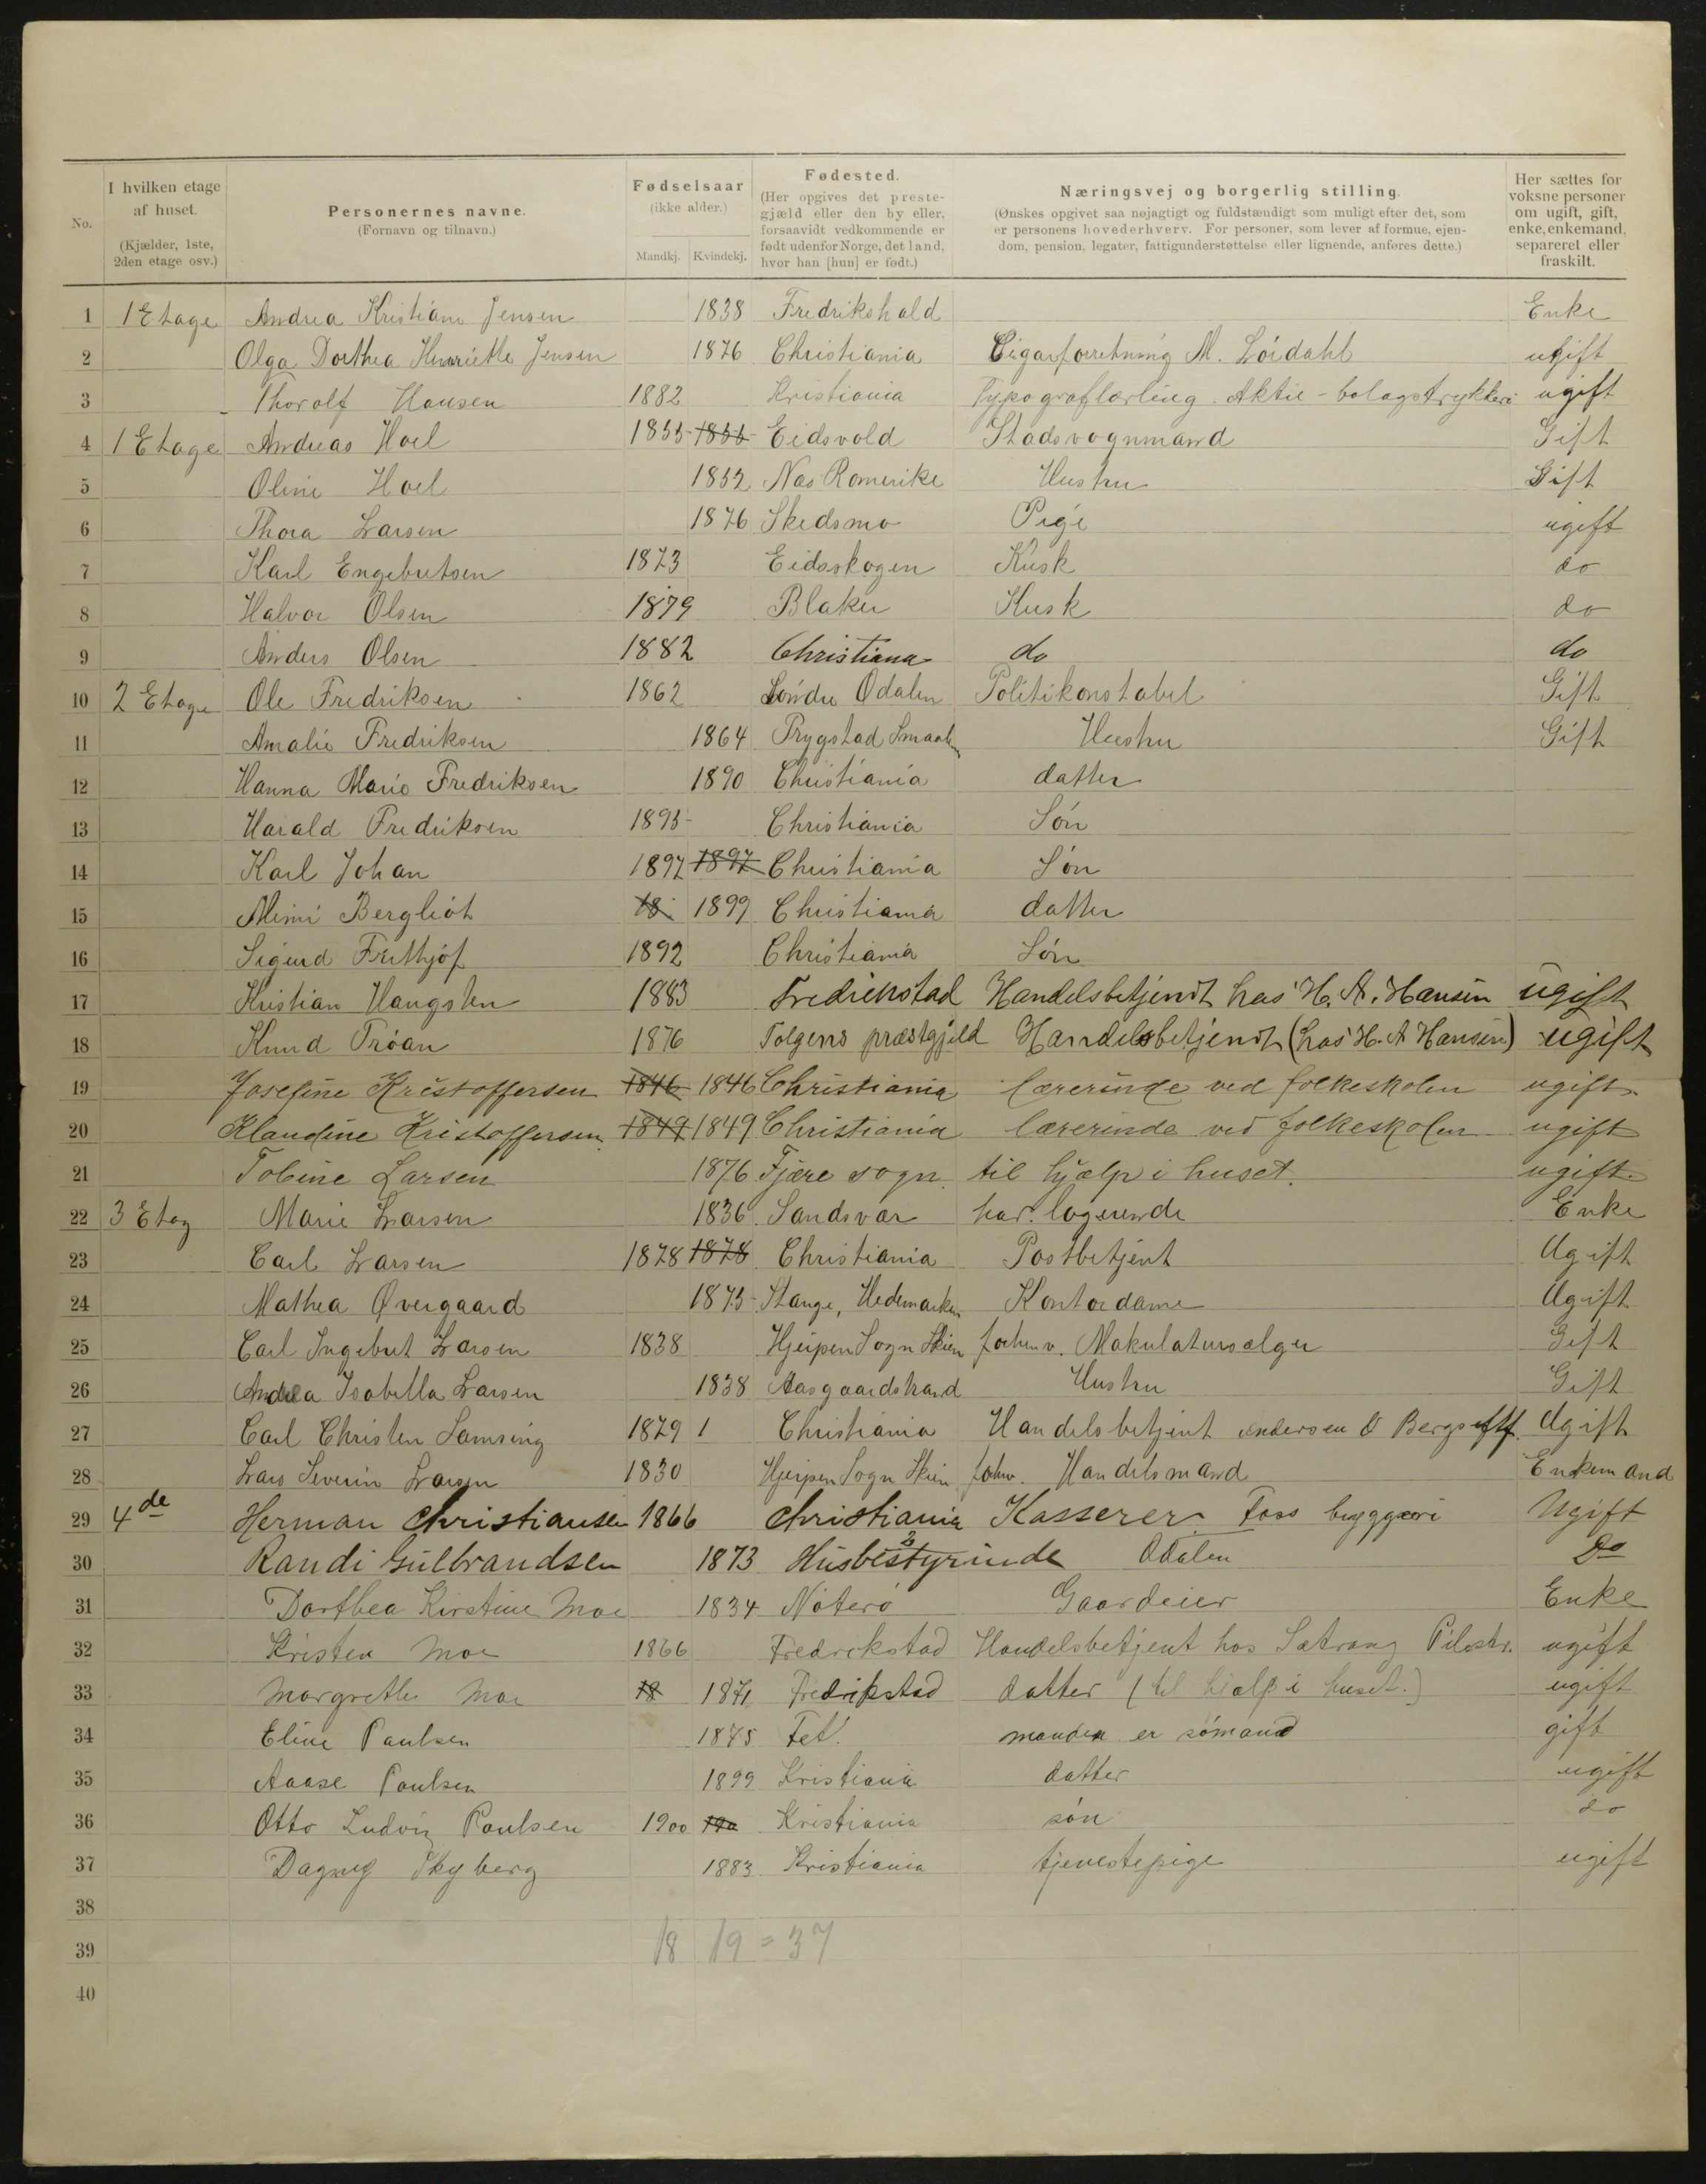 No.
I hvilken etage af huset.
(Kjælder, 1ste, 2den etage osv.)
Personernes navne.
(Fornavn og tilnavn.)
Fødselsaar
(ikke alder.)
Mandkj. Kvindekj.
Fødested.
(Her opgives det prestegjæld eller den by eller, forsaavidt vedkommende er født udenfor Norge, det land, hvor han [hun] er født.)
Næringsvej og borgerlig stilling.
(Ønskes opgivet saa nøjagtigt og fuldstændigt som muligt efter det, som er personens hovederhverv. For personer, som lever af formue, ejendom, pension, legater, fattigunderstøttelse eller lignende, anføres dette.)
Her sættes for voksne personer om ugift, gift, enke, enkemand, separeret eller fraskilt.
1 1 Etage Andrea Kristiane Jensen 1838 Fredrikshald Enke
2 Olga Dorthea Henriette Jensen 1876 Christiania Cigarforretning M. Löidahl ugift
3 Thorolf Hansen 1882 Kristiania Typograflærling. Aktie-bolagstrykkeri ugift
4 1 Etage Andreas Hoel 1855 1855 Eidsvold Stadsvognmand Gift
5 Oline Hoel 1852 Nas Romerike Hustru Gift
6 Thora Larsen 1876 Skedsmo Pige ugift
7 Karl Engebretsen 1873 Eidsskogen Kusk do
8 Halvor Olsen 1879 Blaker Kusk do
9 Anders Olsen 1882 Christiana do do
10 2 Etage Ole Fredriksen 1862 Söndre Odalen Politikonstabel Gift
11 Amalie Fredriksen 1864 Trygstad Smaalen Hustru Gift
12 Hanna Marie Fredriksen 1890 Christiania datter
13 Harald Fredriksen 1895 Christiania Sön
14 Karl Johan 1897 1897 Christiania Sön
15 Mimi Bergliot 18 1899 Christiania datter
16 Sigurd Frithjof 1892 Christiania Sön
17 Kristian Haugsten 1883 Fredrikstad Handelsbetjendt hos H. A. Hansen ugift
18 Knud Tröan 1876 Tolgens præstgjeld Handelsbetjendt (hos H. A Hansen) ugift
19 Josefine Kristoffersen 1846 1846 Christiania lærerinde ved folkeskolen ugift
20 Klaudine Kristoffersen 1849 1849 Christiania lærerinde ved folkeskolen ugift
21 Tobine Larsen 1876 Fjære sogn til hjælp i huset. ugift
22 3 Etag Marie Larsen 1836 Sandsvær har logerende Enke
23 Carl Larsen 1878 1878 Christiania Postbetjent Ugift
24 Mathea Øvergaard 1875 Stange, Hedemarken Kontordame Ugift
25 Carl Ingebret Larsen 1838 Hjerpen Sogn Skien forhenv. Makulatursælger Gift
26 Andrea Isabella Larsen 1838 Aasgaardstrand Hustru Gift
27 Carl Christen Samsing 1879 1 Christiania Handelsbetjent Andersen & Bergs eftf. Ugift
28 Lars Severin Larsen 1830 Hjerpen Sogn Skien forhv. Handelsmand Enkemand
29 4de Herman Christiansen 1866 Christiania Kasserer Foss bryggeri Ugift
30 Randi Gulbrandsen 1873 Husbestyrinde Odalen Do
31 Dorthea Kirstine Moe 1834 Nöterö Gaardeier Enke
32 Kristen Moe 1866 Fredrikstad Handelsbetjent hos Sætrang Pilestr. ugift
33 Margrethe Moe 18 1871 Fredrikstad datter (til hjælp i huset.) ugift
34 Eline Paulsen 1875 Fet. manden er sömand gift
35 Aaase Paulsen 1899 Kristiania datter ugift
36 Otto Ludvig Paulsen 1900 190 Kristiania sön do
37 Dagny Skyberg 1883 Kristiania tjenestepige ugift
38
39 18 19 = 37
40